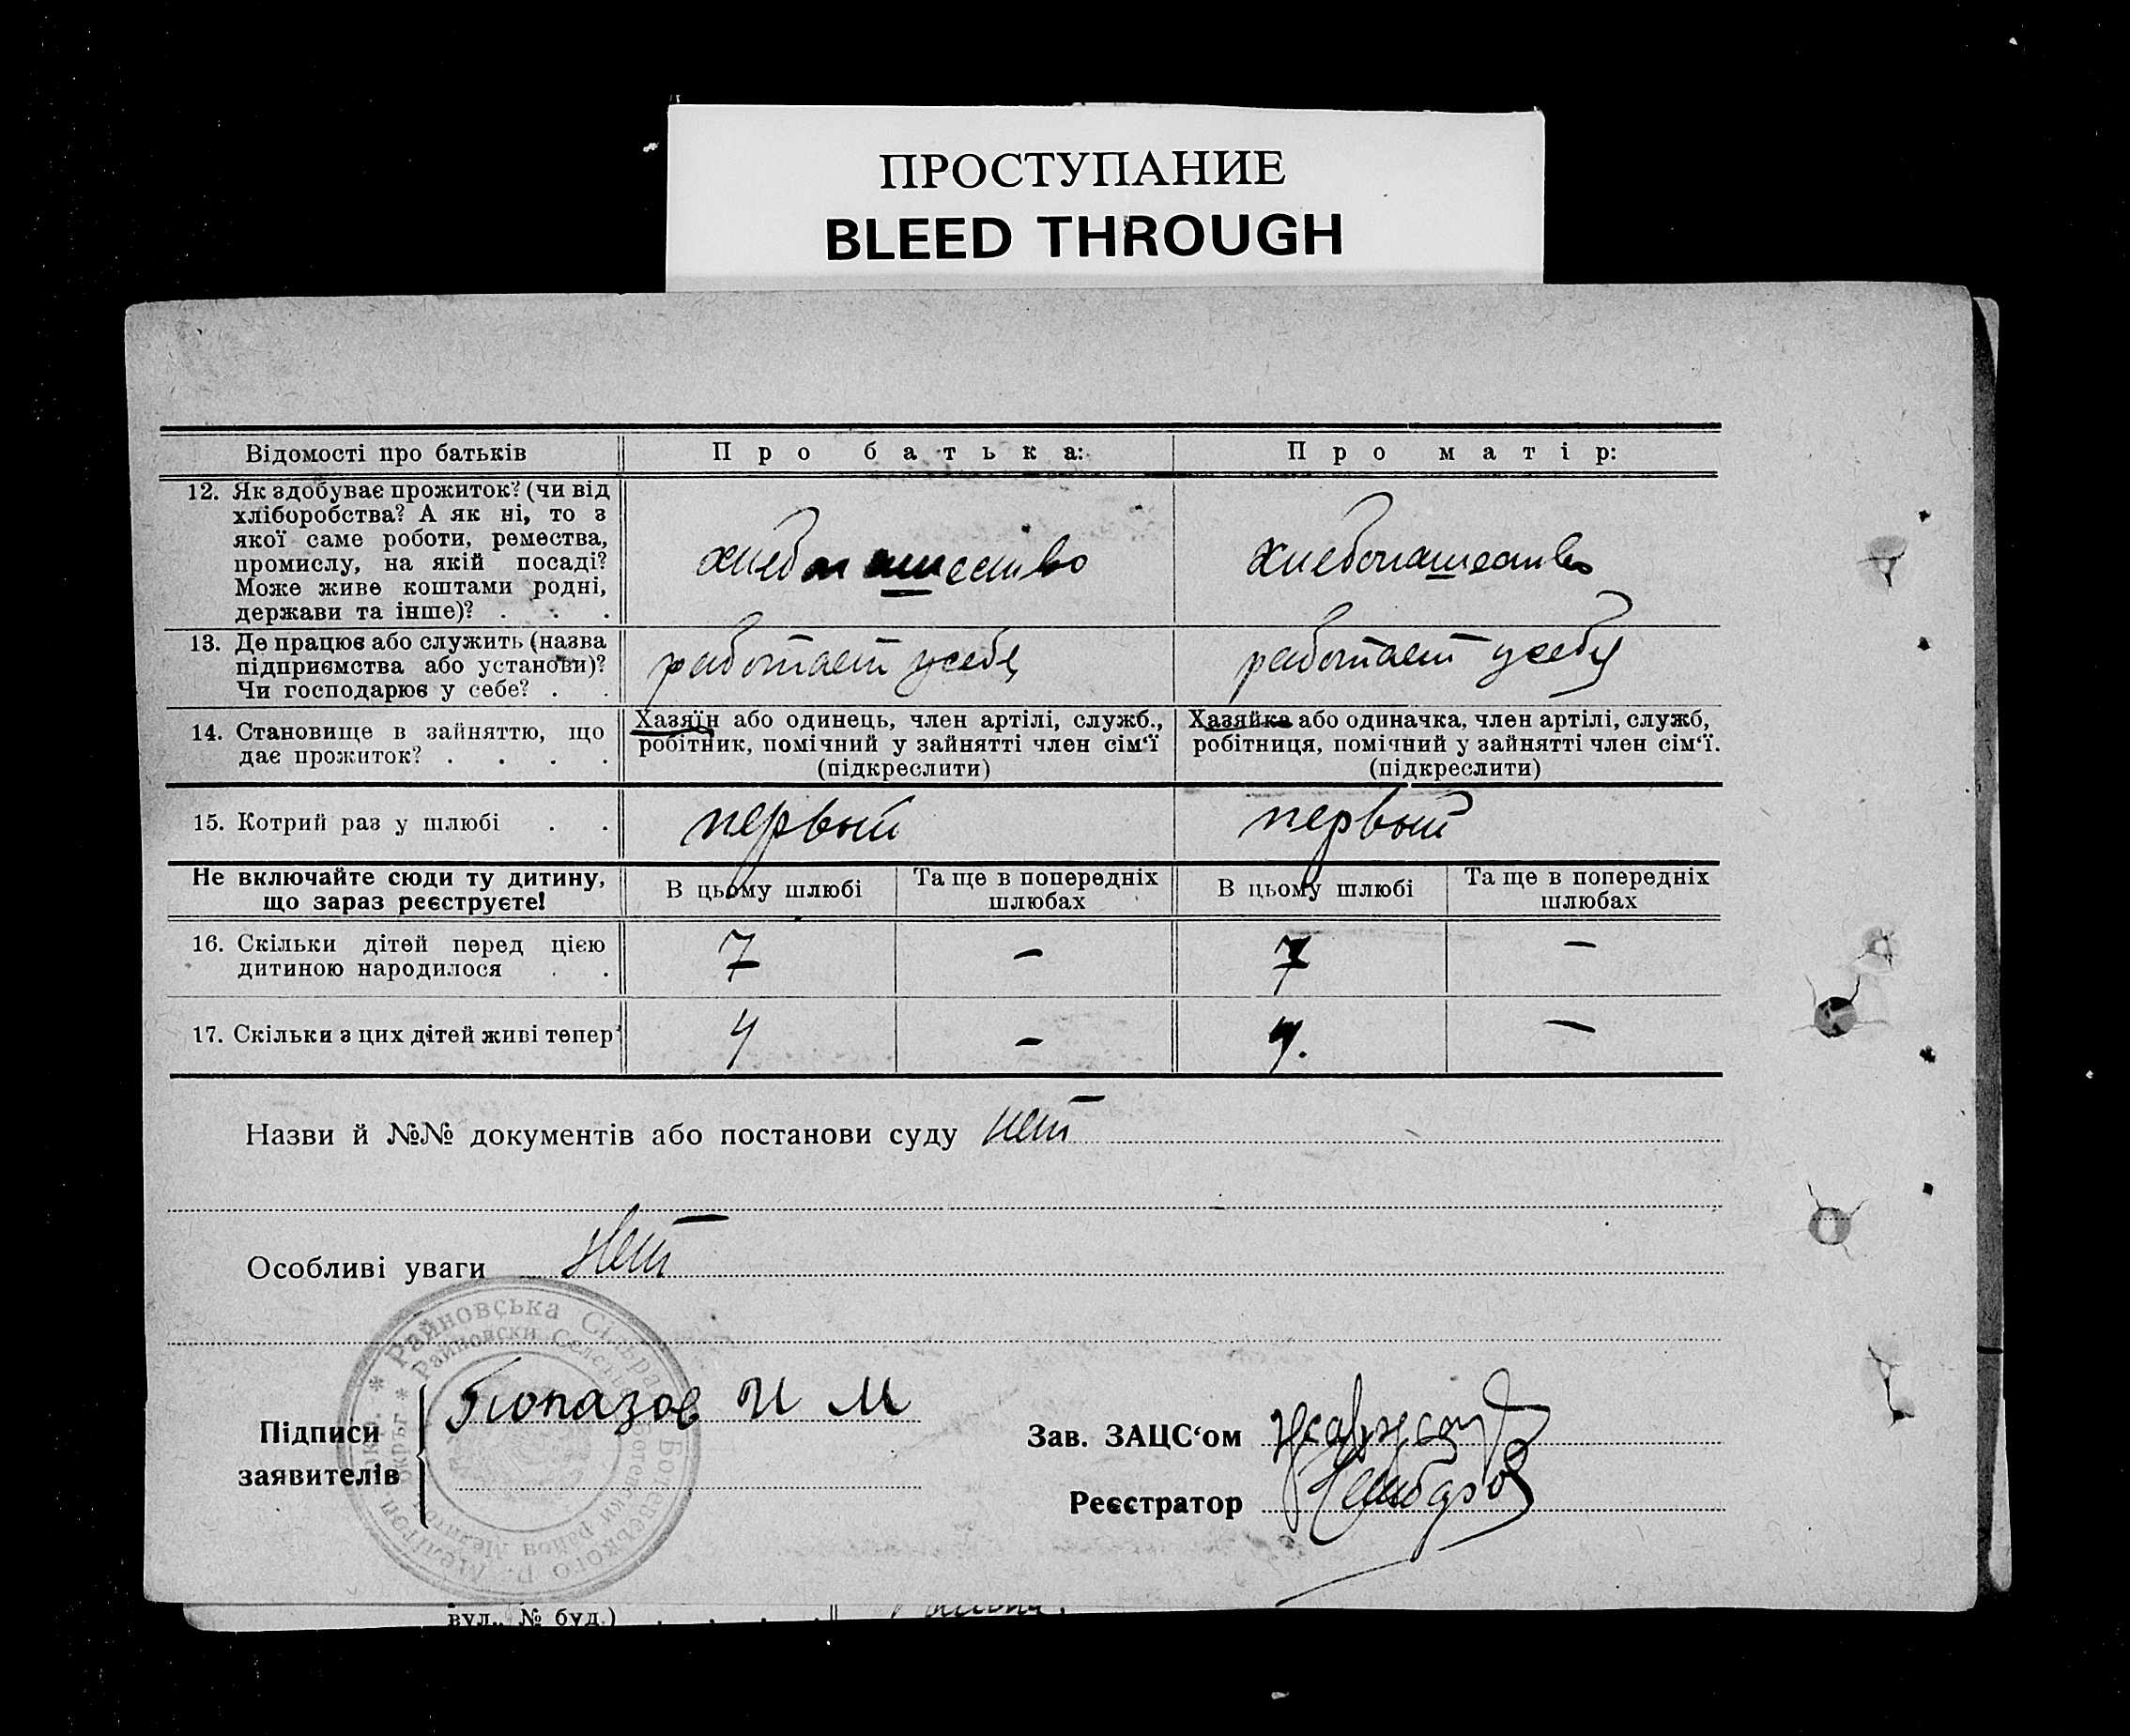 ПРОСТУПАНИЕ
BLEED THROUGH
Відомості про батьків
Про батька:
Про матір:
12. Як здобуває прожиток? (чи від
хліборобства? А як ні, то з
якої саме роботи, ремества,
промислу, на якій посаді?
Може живе коштами родні,
держави та інше)? . . .
хлебопашество
хлебопашество
13. Де працює або служить (назва
підприємства або установи)?
Чи господарює у себе? . .
работает у себя
работает у себя
14. Становище в зайняттю, що
дає прожиток? . . . .
Хазяїн або одинець, член артілі, служб.,
робітник, помічний у зайнятті член сім‘ї
(підкреслити)
Хазяйка або одиначка, член артілі, служб,
робітниця, помічний у зайнятті член сім‘ї.
(підкреслити)
15. Котрий раз у шлюбі . .
первый
первый
Не включайте сюди ту дитину,
що зараз реєструєте!
В цьому шлюбі
Та ще в попередніх
шлюбах
В цьому шлюбі
Та ще в попередніх
шлюбах
16. Скільки дітей перед цією
дитиною народилося . .
7
–
7
–
17. Скільки з цих дітей живі тепер?
4
–
4.
–
Назви й №№ документів або постанови суду нет
Особливі уваги нет
* Райновська Сільрада Ботієвського р. Мелітоп. окр.
* Райновски Селски Ботевски район Мелитоп. окръг
Підписи
заявителів
Топазов И М
Зав. ЗАЦС‘ом
Реєстратор
вул., № буд.) . . . .